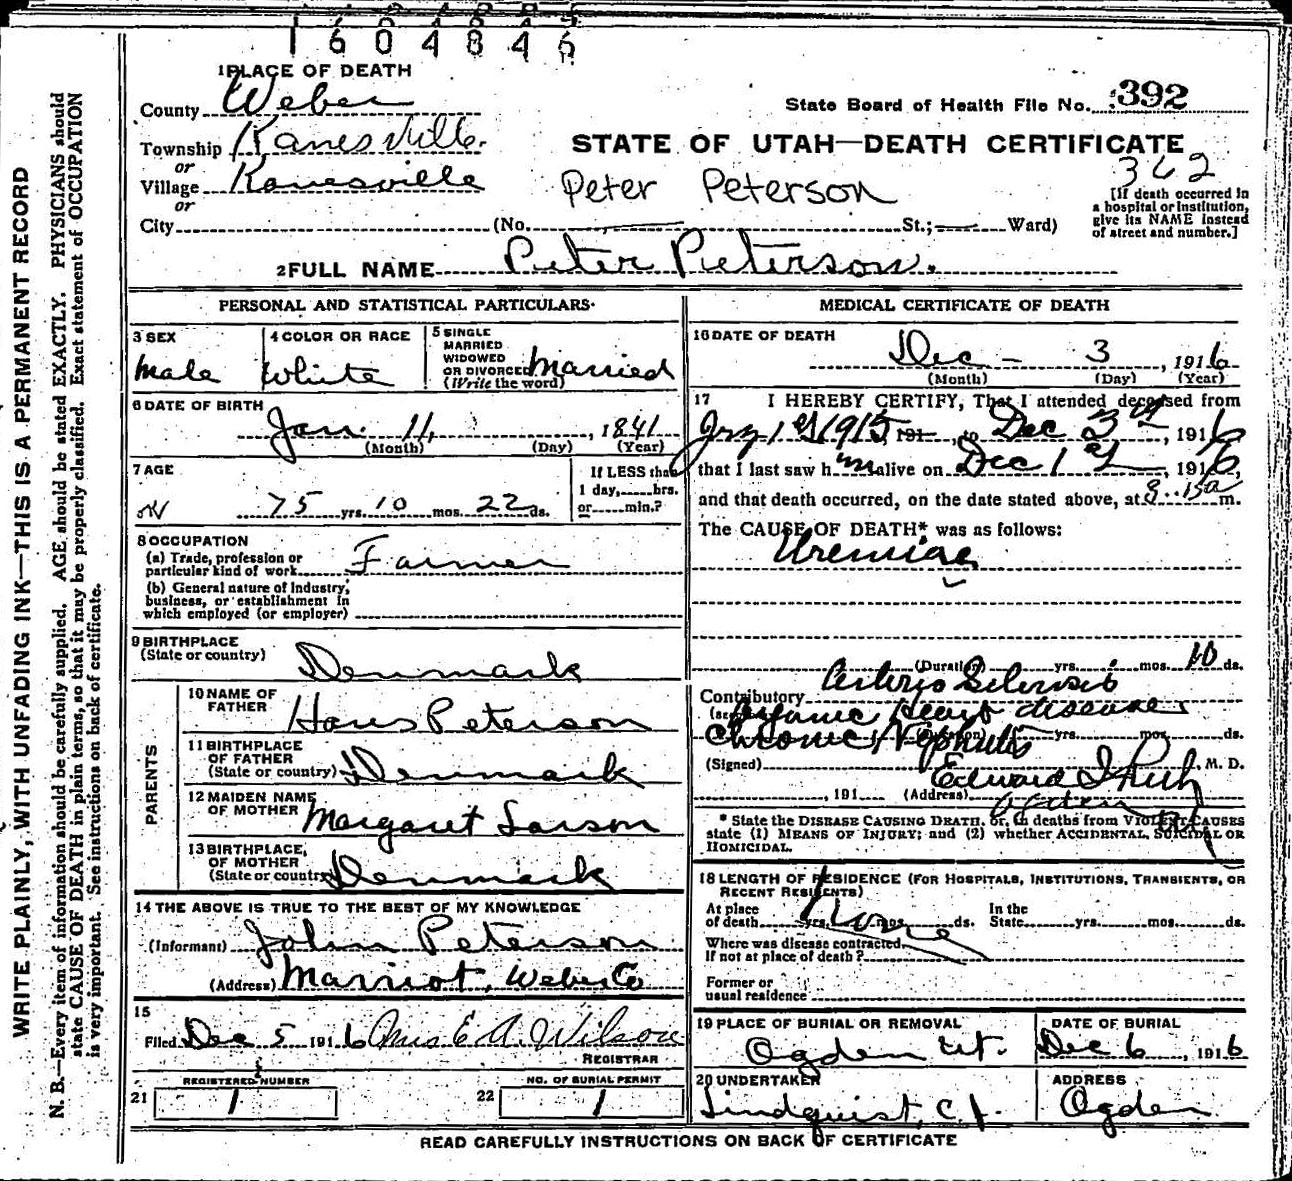 1604845
1 PLACE OF DEATH
County Weber
State Board of Health File No. 392
Township Kanesville.
or
STATE OF UTAH—DEATH CERTIFICATE
362
Village Kanesville
or
Peter Peterson
[If death occurred in a hospital or institution, give its NAME instead of street and number.]
City (No. St.; Ward)
2 FULL NAME Peter Peterson.
PERSONAL AND STATISTICAL PARTICULARS
3 SEX
Male
4 COLOR OR RACE
White
5 SINGLE
MARRIED
WIDOWED
OR DIVORCED
(Write the word)
Married
6 DATE OF BIRTH
Jan. 11, 1841
(Month) (Day) (Year)
7 AGE
75 yrs. 10 mos. 22 ds.
If LESS than
1 day, hrs.
or min.?
8 OCCUPATION
(a) Trade, profession or
particular kind of work Farmer
(b) General nature of industry,
business, or establishment in
which employed (or employer)
9 BIRTHPLACE
(State or country)
Denmark
PARENTS
10 NAME OF
FATHER
Hans Peterson
11 BIRTHPLACE
OF FATHER
(State or country) Denmark
12 MAIDEN NAME
OF MOTHER Margaret Larson
13 BIRTHPLACE
OF MOTHER
(State or country) Denmark
14 THE ABOVE IS TRUE TO THE BEST OF MY KNOWLEDGE
(Informant) John Peterson
(Address) Marriot, Weber Co
15
Filed Dec 5 1916 Mrs E A. Wilson
REGISTRAR
REGISTERED NUMBER
21 1
NO. OF BURIAL PERMIT
22 1
MEDICAL CERTIFICATE OF DEATH
16 DATE OF DEATH
Dec - 3, 1916
(Month) (Day) (Year)
17 I HEREBY CERTIFY, That I attended deceased from
1st 1915, 191 , to Dec 3rd, 1916
that I last saw him alive on Dec 1st, 1916,
and that death occurred, on the date stated above, at 8:15 a m.
The CAUSE OF DEATH* was as follows:
Uremia
(Duration) yrs. mos. 10 ds.
Contributory Arterio Sclerosis
Organic Heart disease
Chronic Nephritis
(Duration) yrs. mos. ds.
(Signed) Edward I Rich, M. D.
, 191 (Address) Ogden
* State the DISEASE CAUSING DEATH, or, in deaths from VIOLENT CAUSES
state (1) MEANS OF INJURY; and (2) whether ACCIDENTAL, SUICIDAL OR
HOMICIDAL.
18 LENGTH OF RESIDENCE (FOR HOSPITALS, INSTITUTIONS, TRANSIENTS, OR
RECENT RESIDENTS)
At place
of death yrs. mos. ds. In the
State yrs. mos. ds.
Where was disease contracted,
If not at place of death?
Former or
usual residence
19 PLACE OF BURIAL OR REMOVAL
Ogden Ut.
DATE OF BURIAL
Dec 6, 1916
20 UNDERTAKER
Lindquist, C. J.
ADDRESS
Ogden
READ CAREFULLY INSTRUCTIONS ON BACK OF CERTIFICATE
WRITE PLAINLY, WITH UNFADING INK—THIS IS A PERMANENT RECORD
N. B.—Every item of information should be carefully supplied. AGE should be stated EXACTLY. PHYSICIANS should
state CAUSE OF DEATH in plain terms, so that it may be properly classified. Exact statement of OCCUPATION
is very important. See instructions on back of certificate.